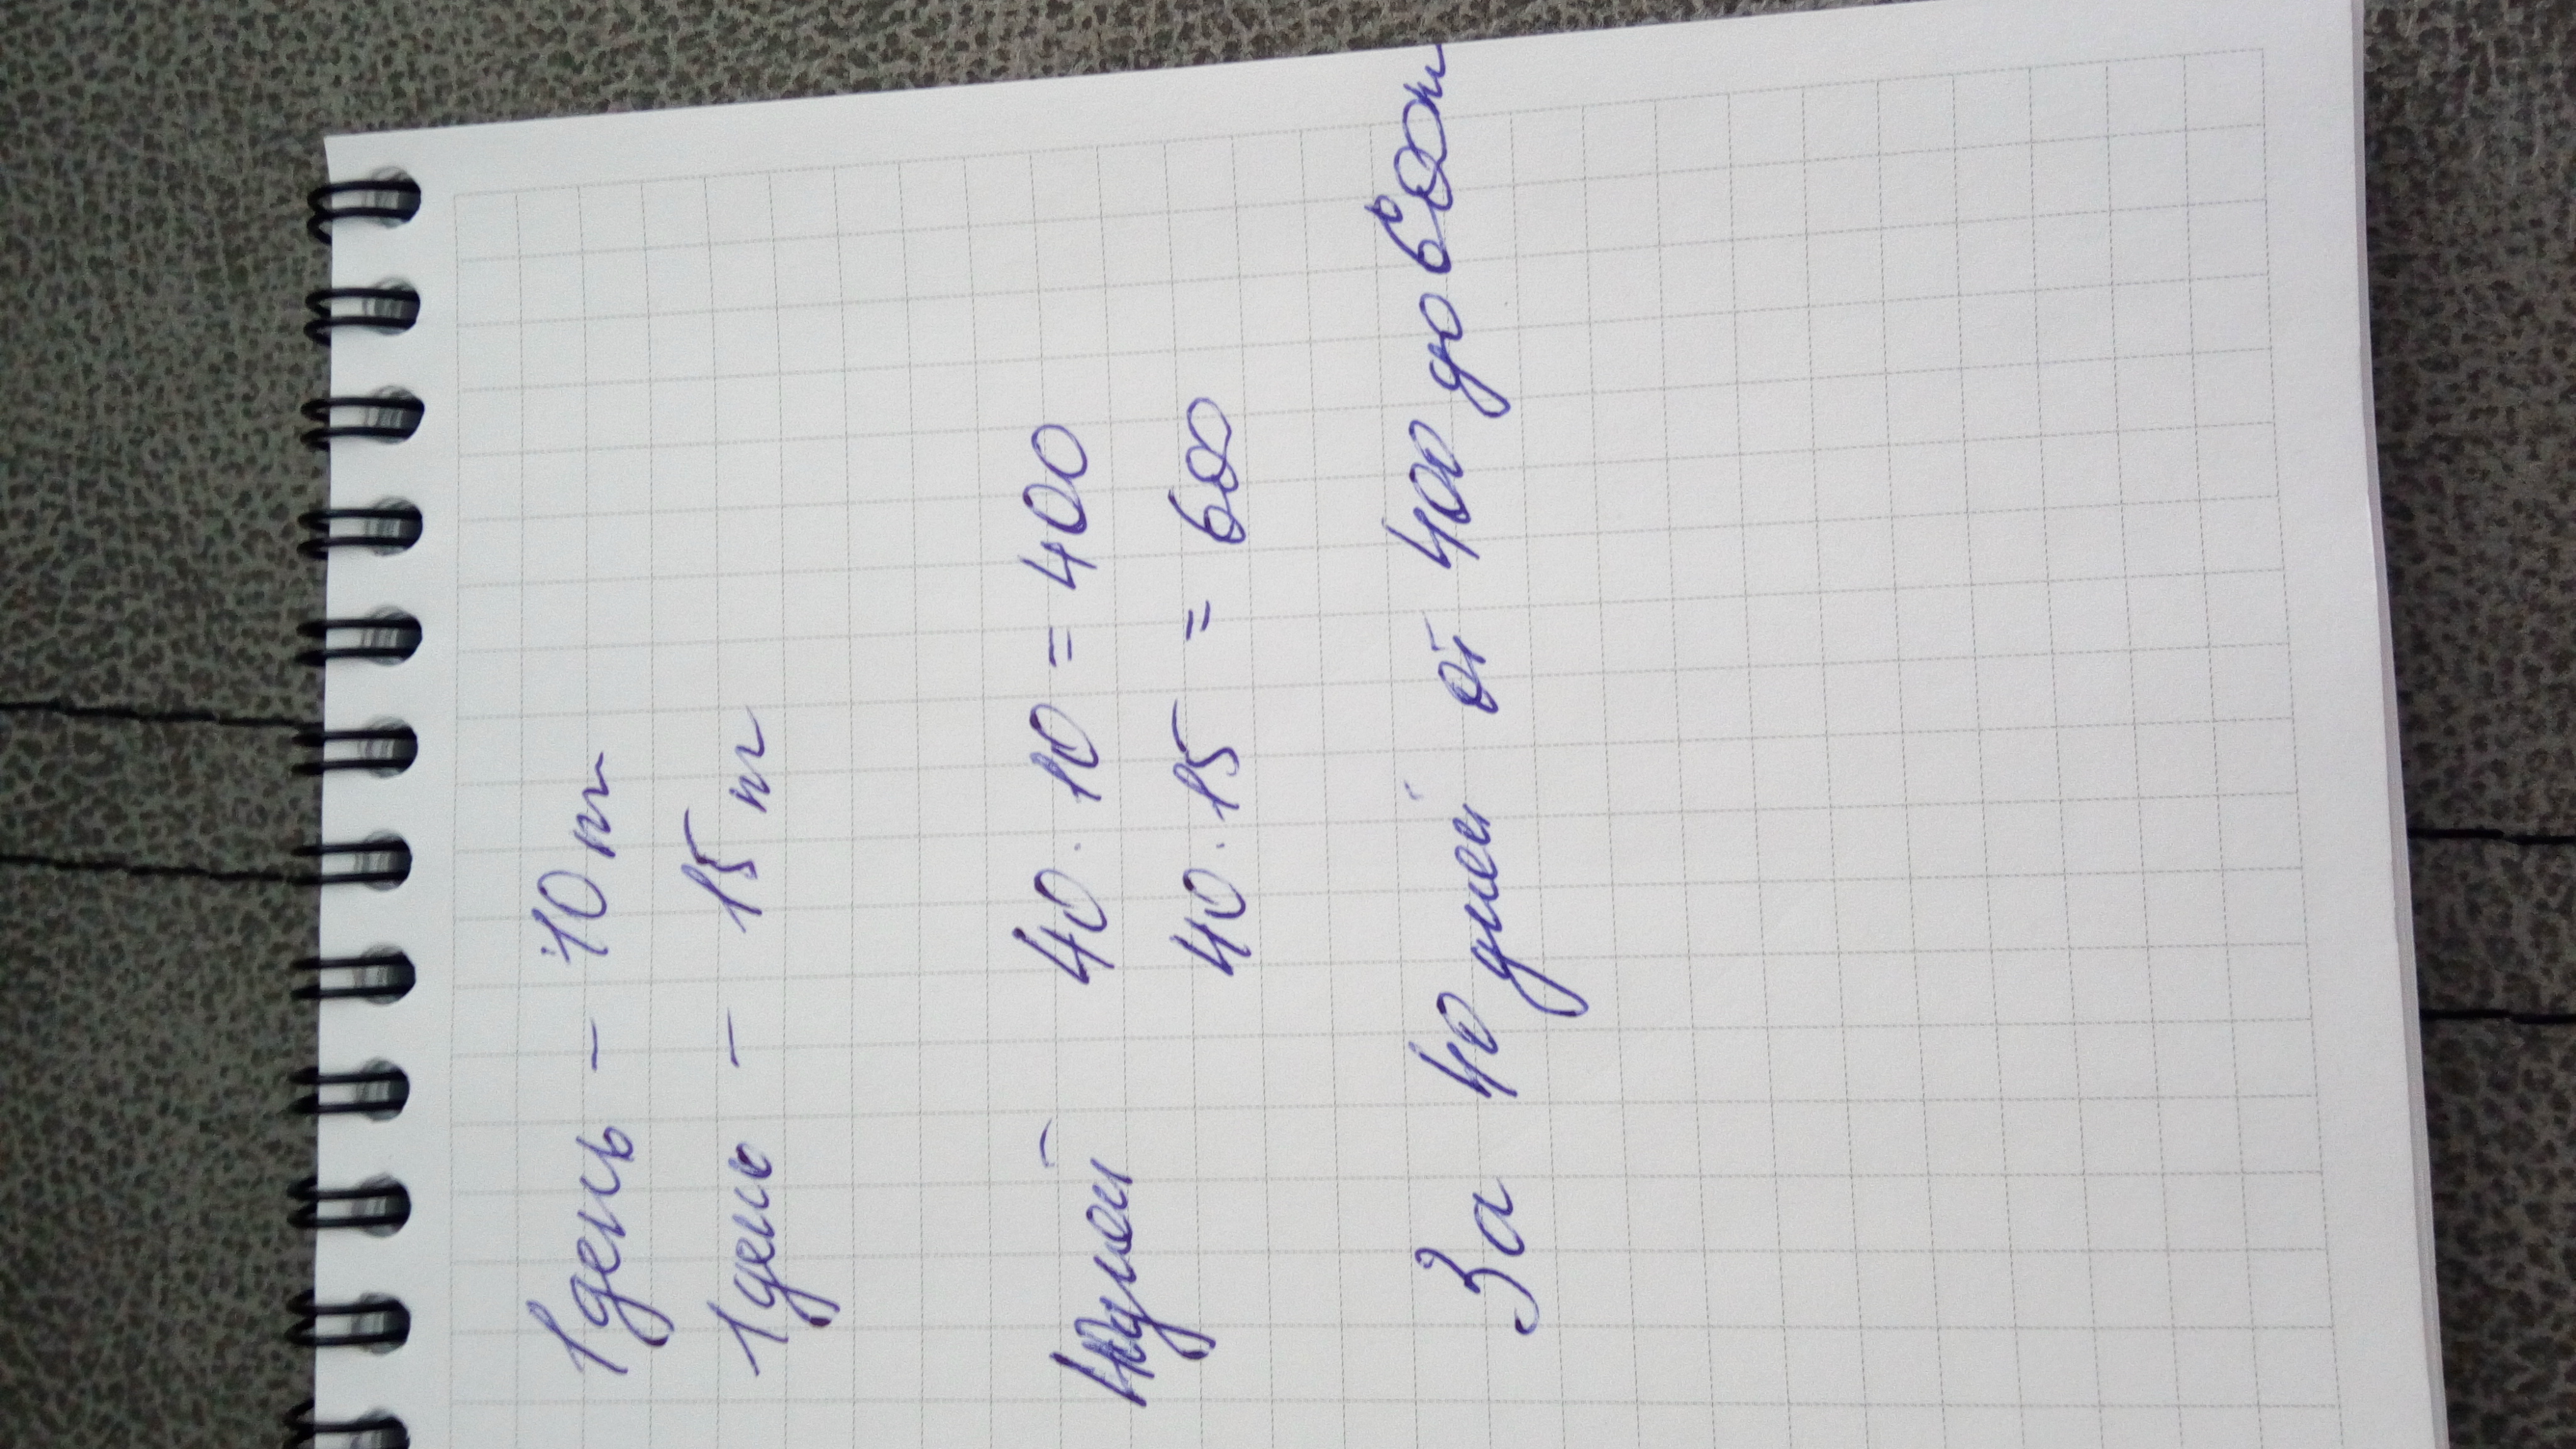 1 день - 10 т
1 день - 15 т
40 дней 40 · 10 = 400
40 · 15 = 600
За 40 дней от 400 до 600 т